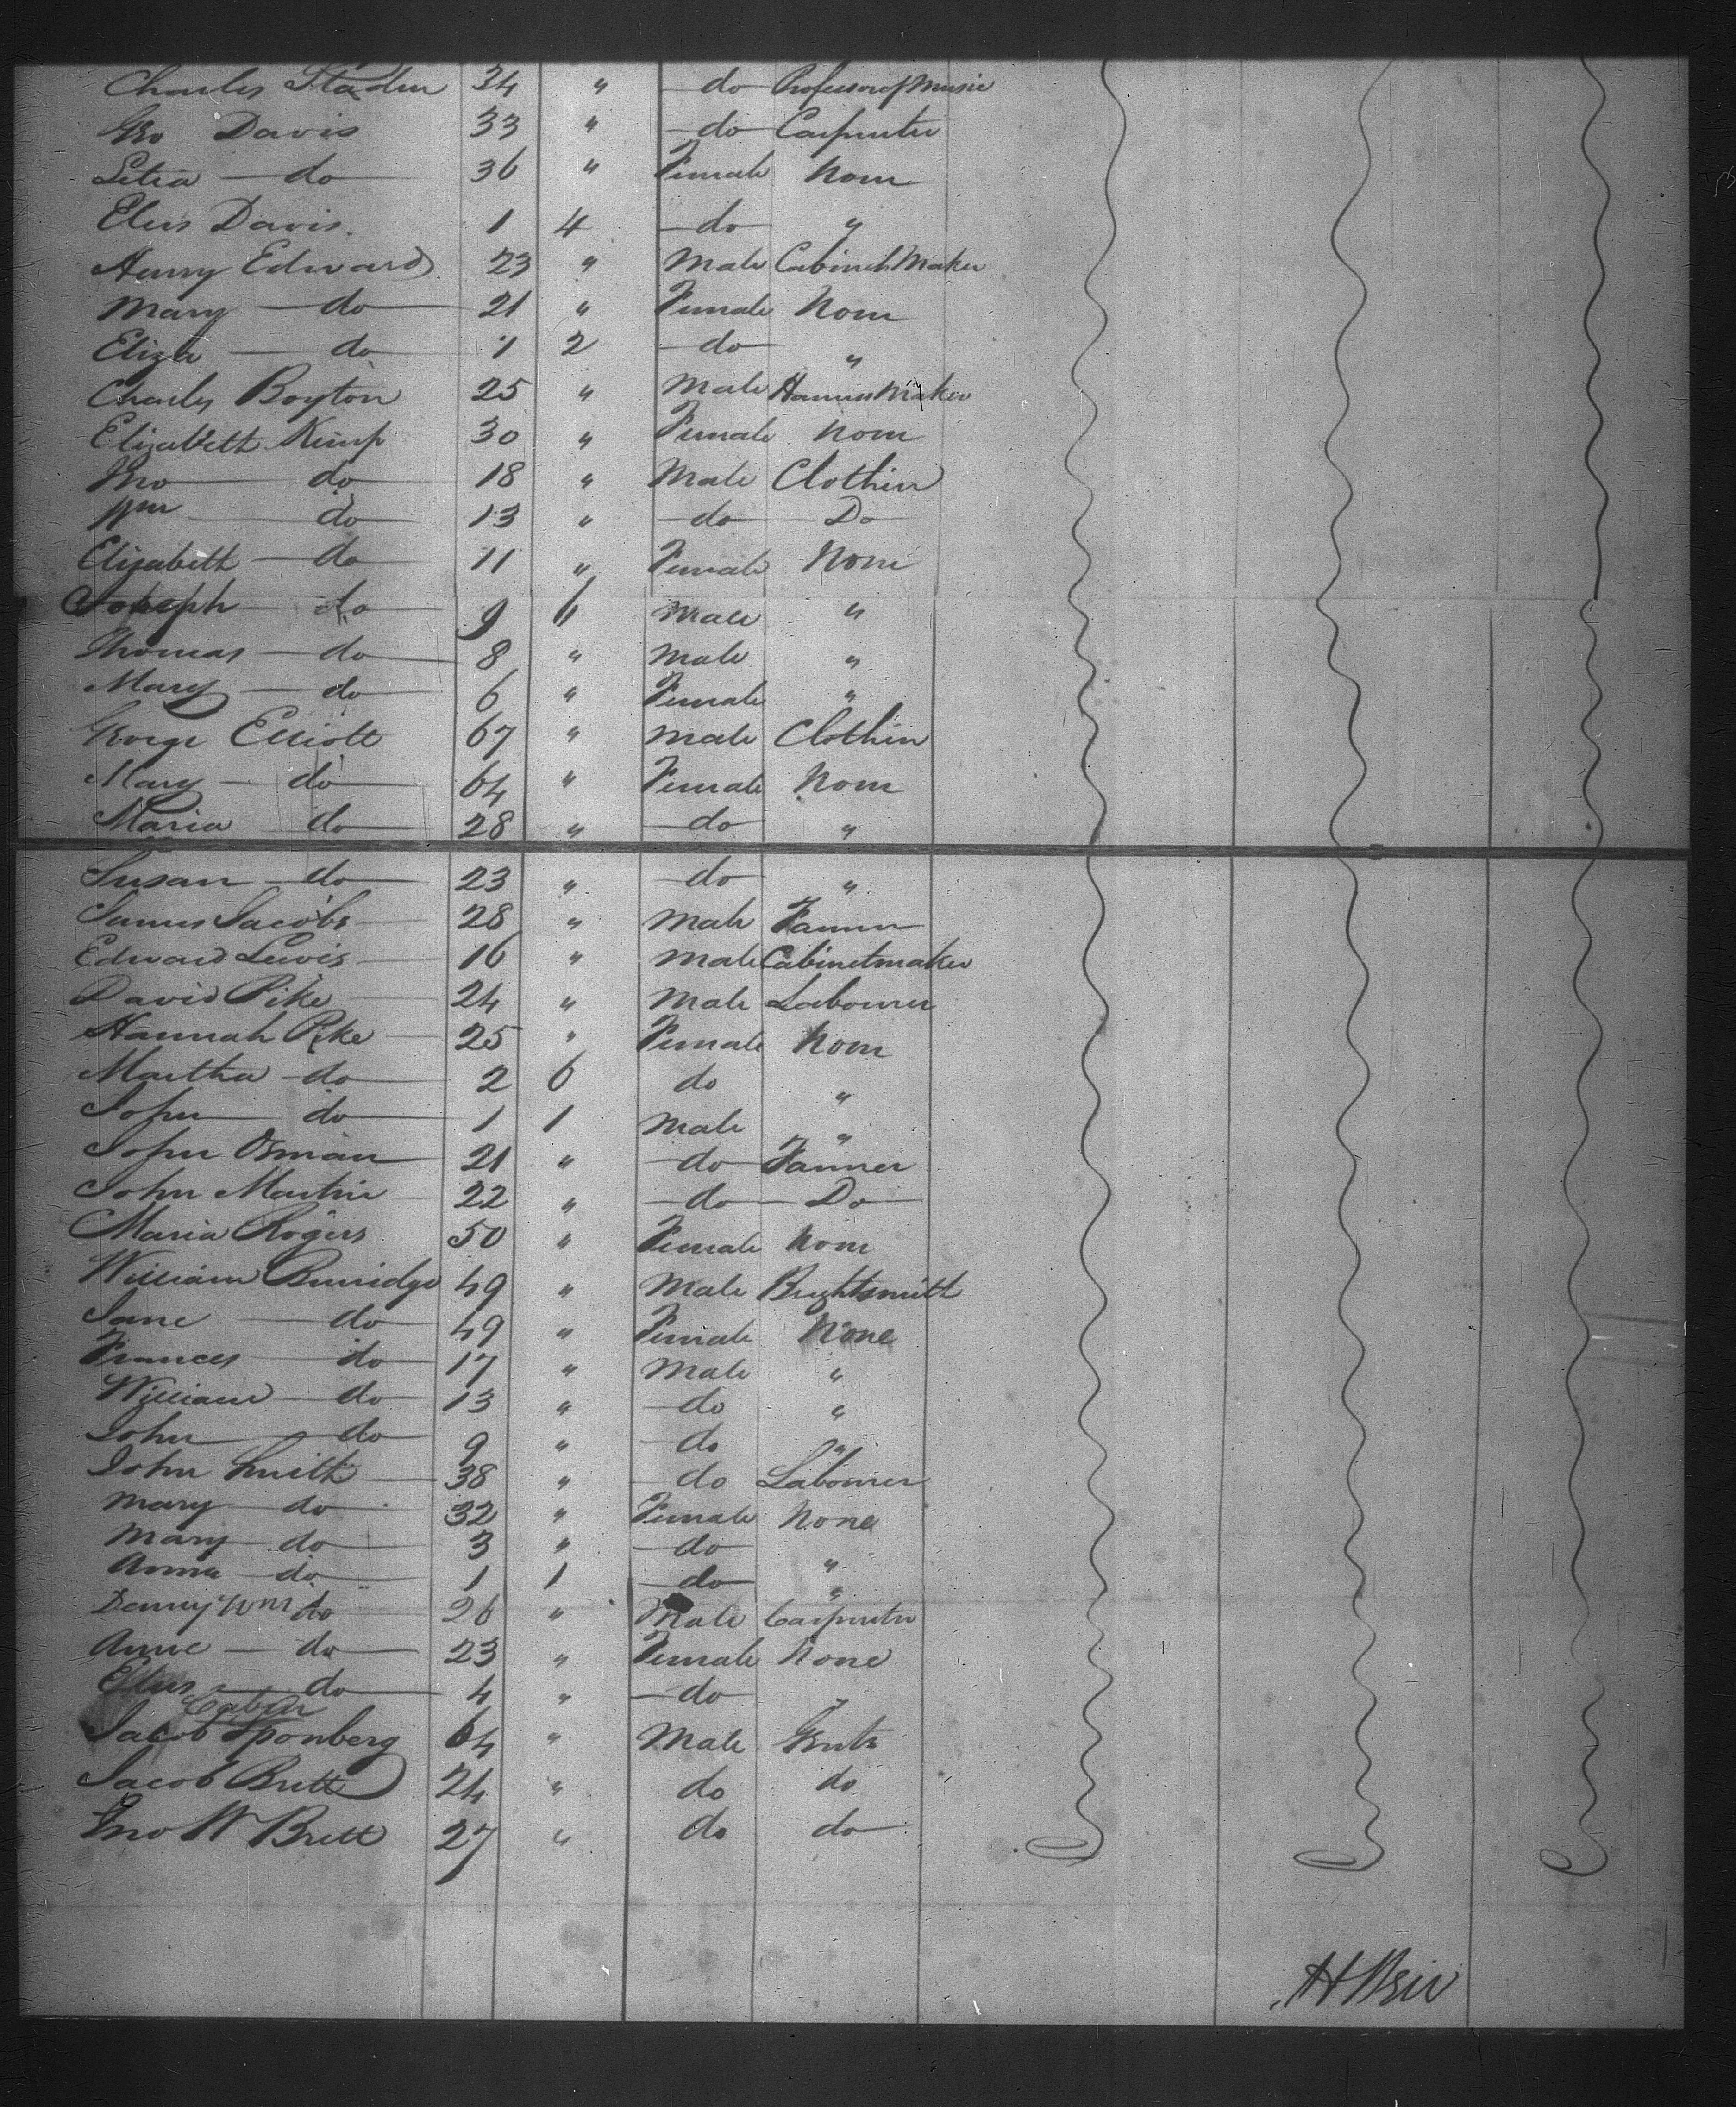 Charles Staden 34 " do Professor of Music
Geo Davis 33 " do Carpenter
Letia do 36 " Female None
Elus Davis. 1 4 do "
Henry Edwards 23 " Male Cabinet Maker
Mary do 21 " Female None
Eliza do 1 2 do "
Charles Boyton 25 " Male Harness Maker
Elizabeth Kemp 30 " Female None
Jno do 18 " Male Clothier
Wm do 13 " do Do
Elizabeth do 11 " Female None
Joseph do 9 " Male "
Thomas do 8 " Male "
Mary do 6 " Female "
George Elliott 67 " Male Clothier
Mary do 64 " Female None
Maria do 28 " do "
Susan do 23 " do "
James Jacobs 28 " Male Tanner
Edward Lewis 16 " Male Cabinetmaker
David Pike 24 " Male Labourer
Hannah Pike 25 " Female None
Martha do 2 6 do "
John do 1 1 Male "
John Osman 21 " do Tanner
John Martin 22 " do Do
Maria Rogers 50 " Female None
William Burridge 49 " Male Brightsmith
Jane do 49 " Female None
Frances do 17 " Male "
William do 13 " do "
John do 9 " do "
John Smith 38 " do Labourer
Mary do 32 " Female None
Mary do 3 " do "
Anna do 1 1 do "
Denny Wm do 26 " Male Carpenter
Anne do 23 " Female None
Elus do 4 " do "
Cabin
Jacob Sponberg 64 " Male Gents
Jacob Britt 24 " do do
Jno W Britt 27 " do do